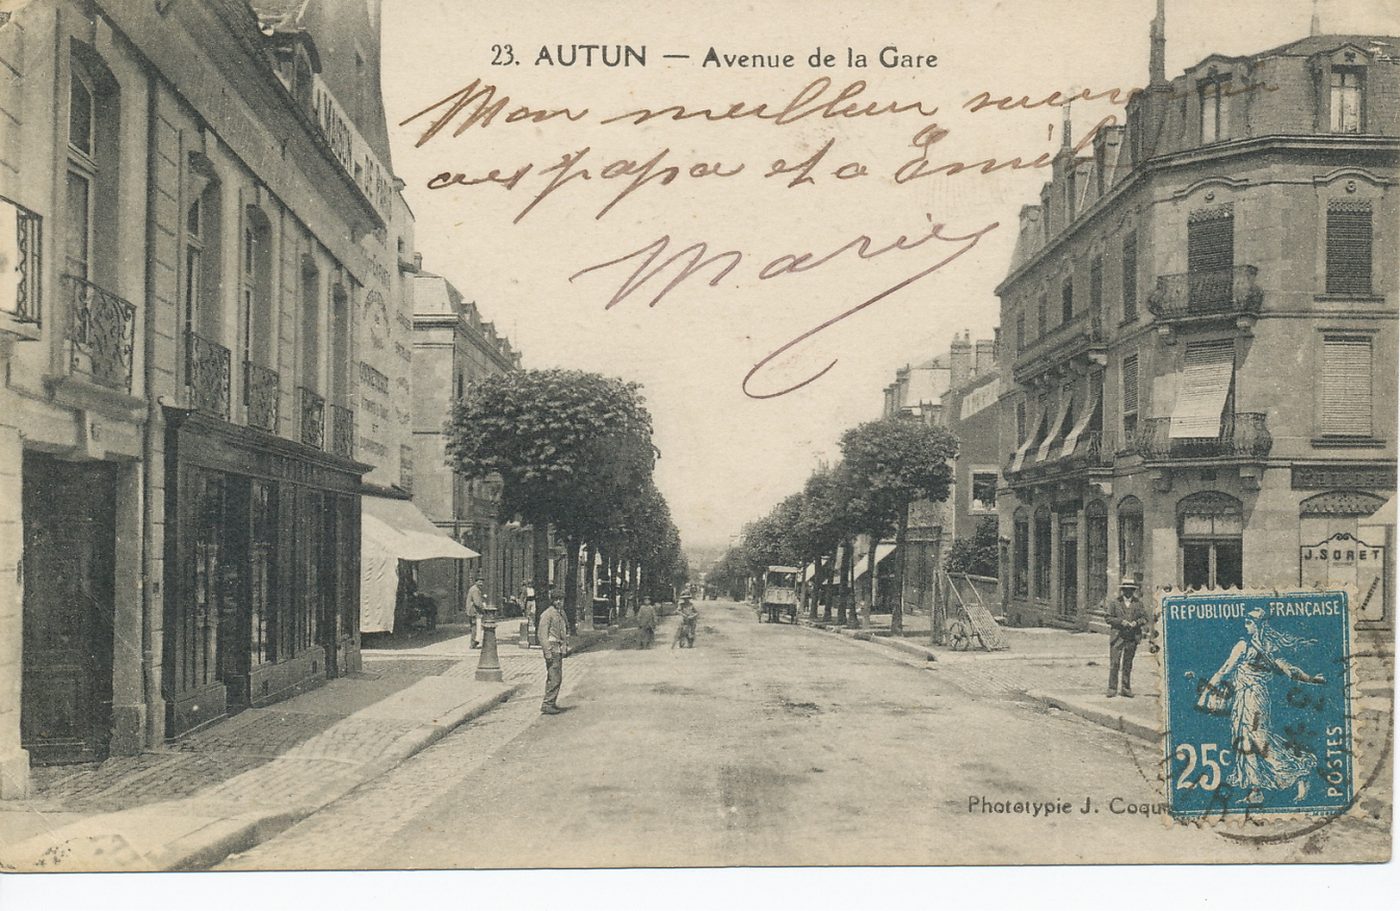 23. AUTUN — Avenue de la Gare
Mon meilleur souvenir
aux papa et a Emile
Marie
J. SORET
REPUBLIQUE FRANÇAISE
25c
POSTES
Phototypie J. Coqu